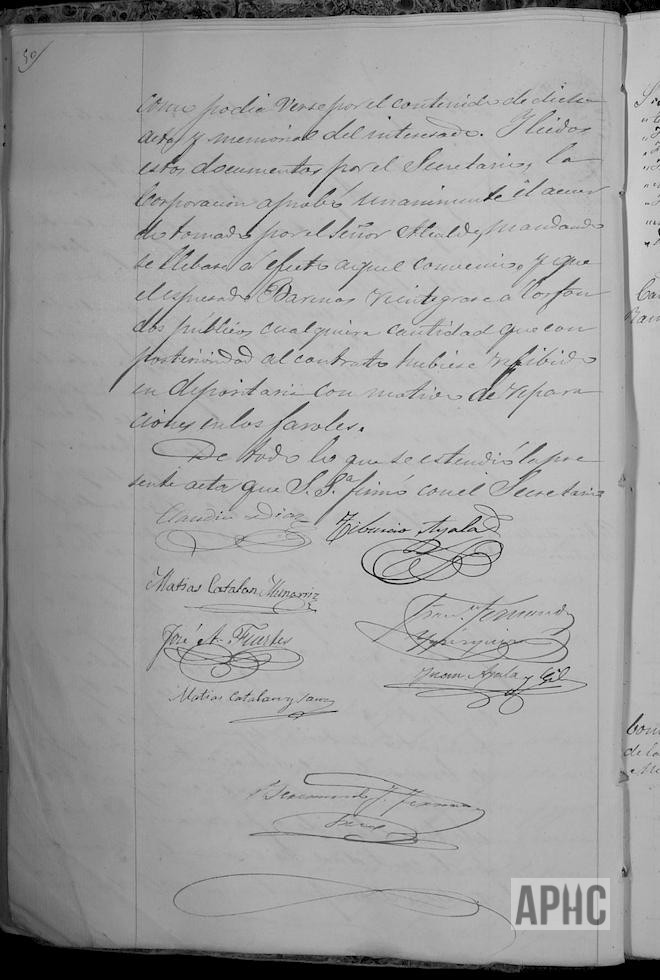 50
como podia verse por el contenido de dicha
acta y memorial del interesado. Y leidos
estos documentos por el Secretario, la
Corporacion aprobó unanimente el acuer
do tomado por el Señor Alcalde, mandando
se llebase á efecto aquel convenio, y que
el espresado Barinas reintegrase a los fon
dos públicos cualquiera cantidad que con
posterioridad al contrato hubiese recibido
en depositaria con motivo de repara
ciones en los faroles.
De todo lo que se estendió la pre
sente acta que S. S.ª firmó con el Secretario
Claudio Diaz
Tiburcio Ayala
Matias Catalan Munarriz
Fran.co Fernand
José A. Fuertes
Juan Ayala y Gil
Matias Catalan y Sanz
J. Fernan
APHC